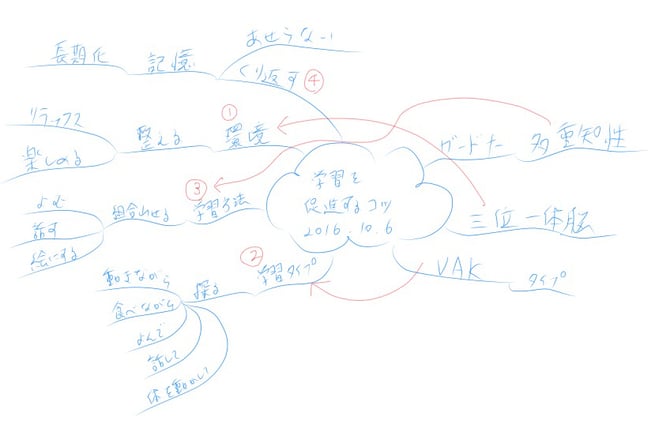 学習を
促進するコツ
2016.10.6
① 環境
整える
リラックス
楽しめる
② 学習タイプ
探る
動きながら
食べながら
よんで
話して
体を動かして
③ 学習方法
組合わせる
よむ
話す
絵にする
④
くり返す
あせらない
記憶
長期化
多重知性
ガードナー
三位一体脳
VAK
タイプ